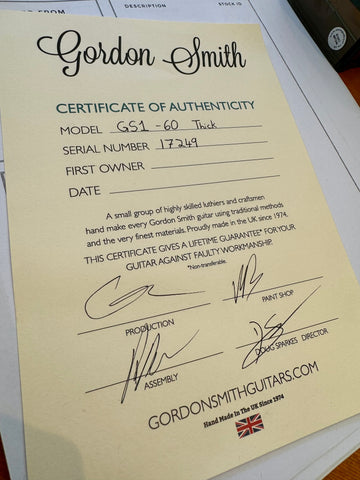 FROM
DESCRIPTION
STOCK ID
Gordon Smith
CERTIFICATE OF AUTHENTICITY
MODEL GS1 - 60 Thick
SERIAL NUMBER 17249
FIRST OWNER
DATE
A small group of highly skilled luthiers and craftsmen
hand make every Gordon Smith guitar using traditional methods
and the very finest materials. Proudly made in the UK since 1974.
THIS CERTIFICATE GIVES A LIFETIME GUARANTEE* FOR YOUR
GUITAR AGAINST FAULTY WORKMANSHIP.
*Non-transferable.
PRODUCTION
PAINT SHOP
ASSEMBLY
DOUG SPARKES DIRECTOR
GORDONSMITHGUITARS.COM
Hand Made In The UK Since 1974